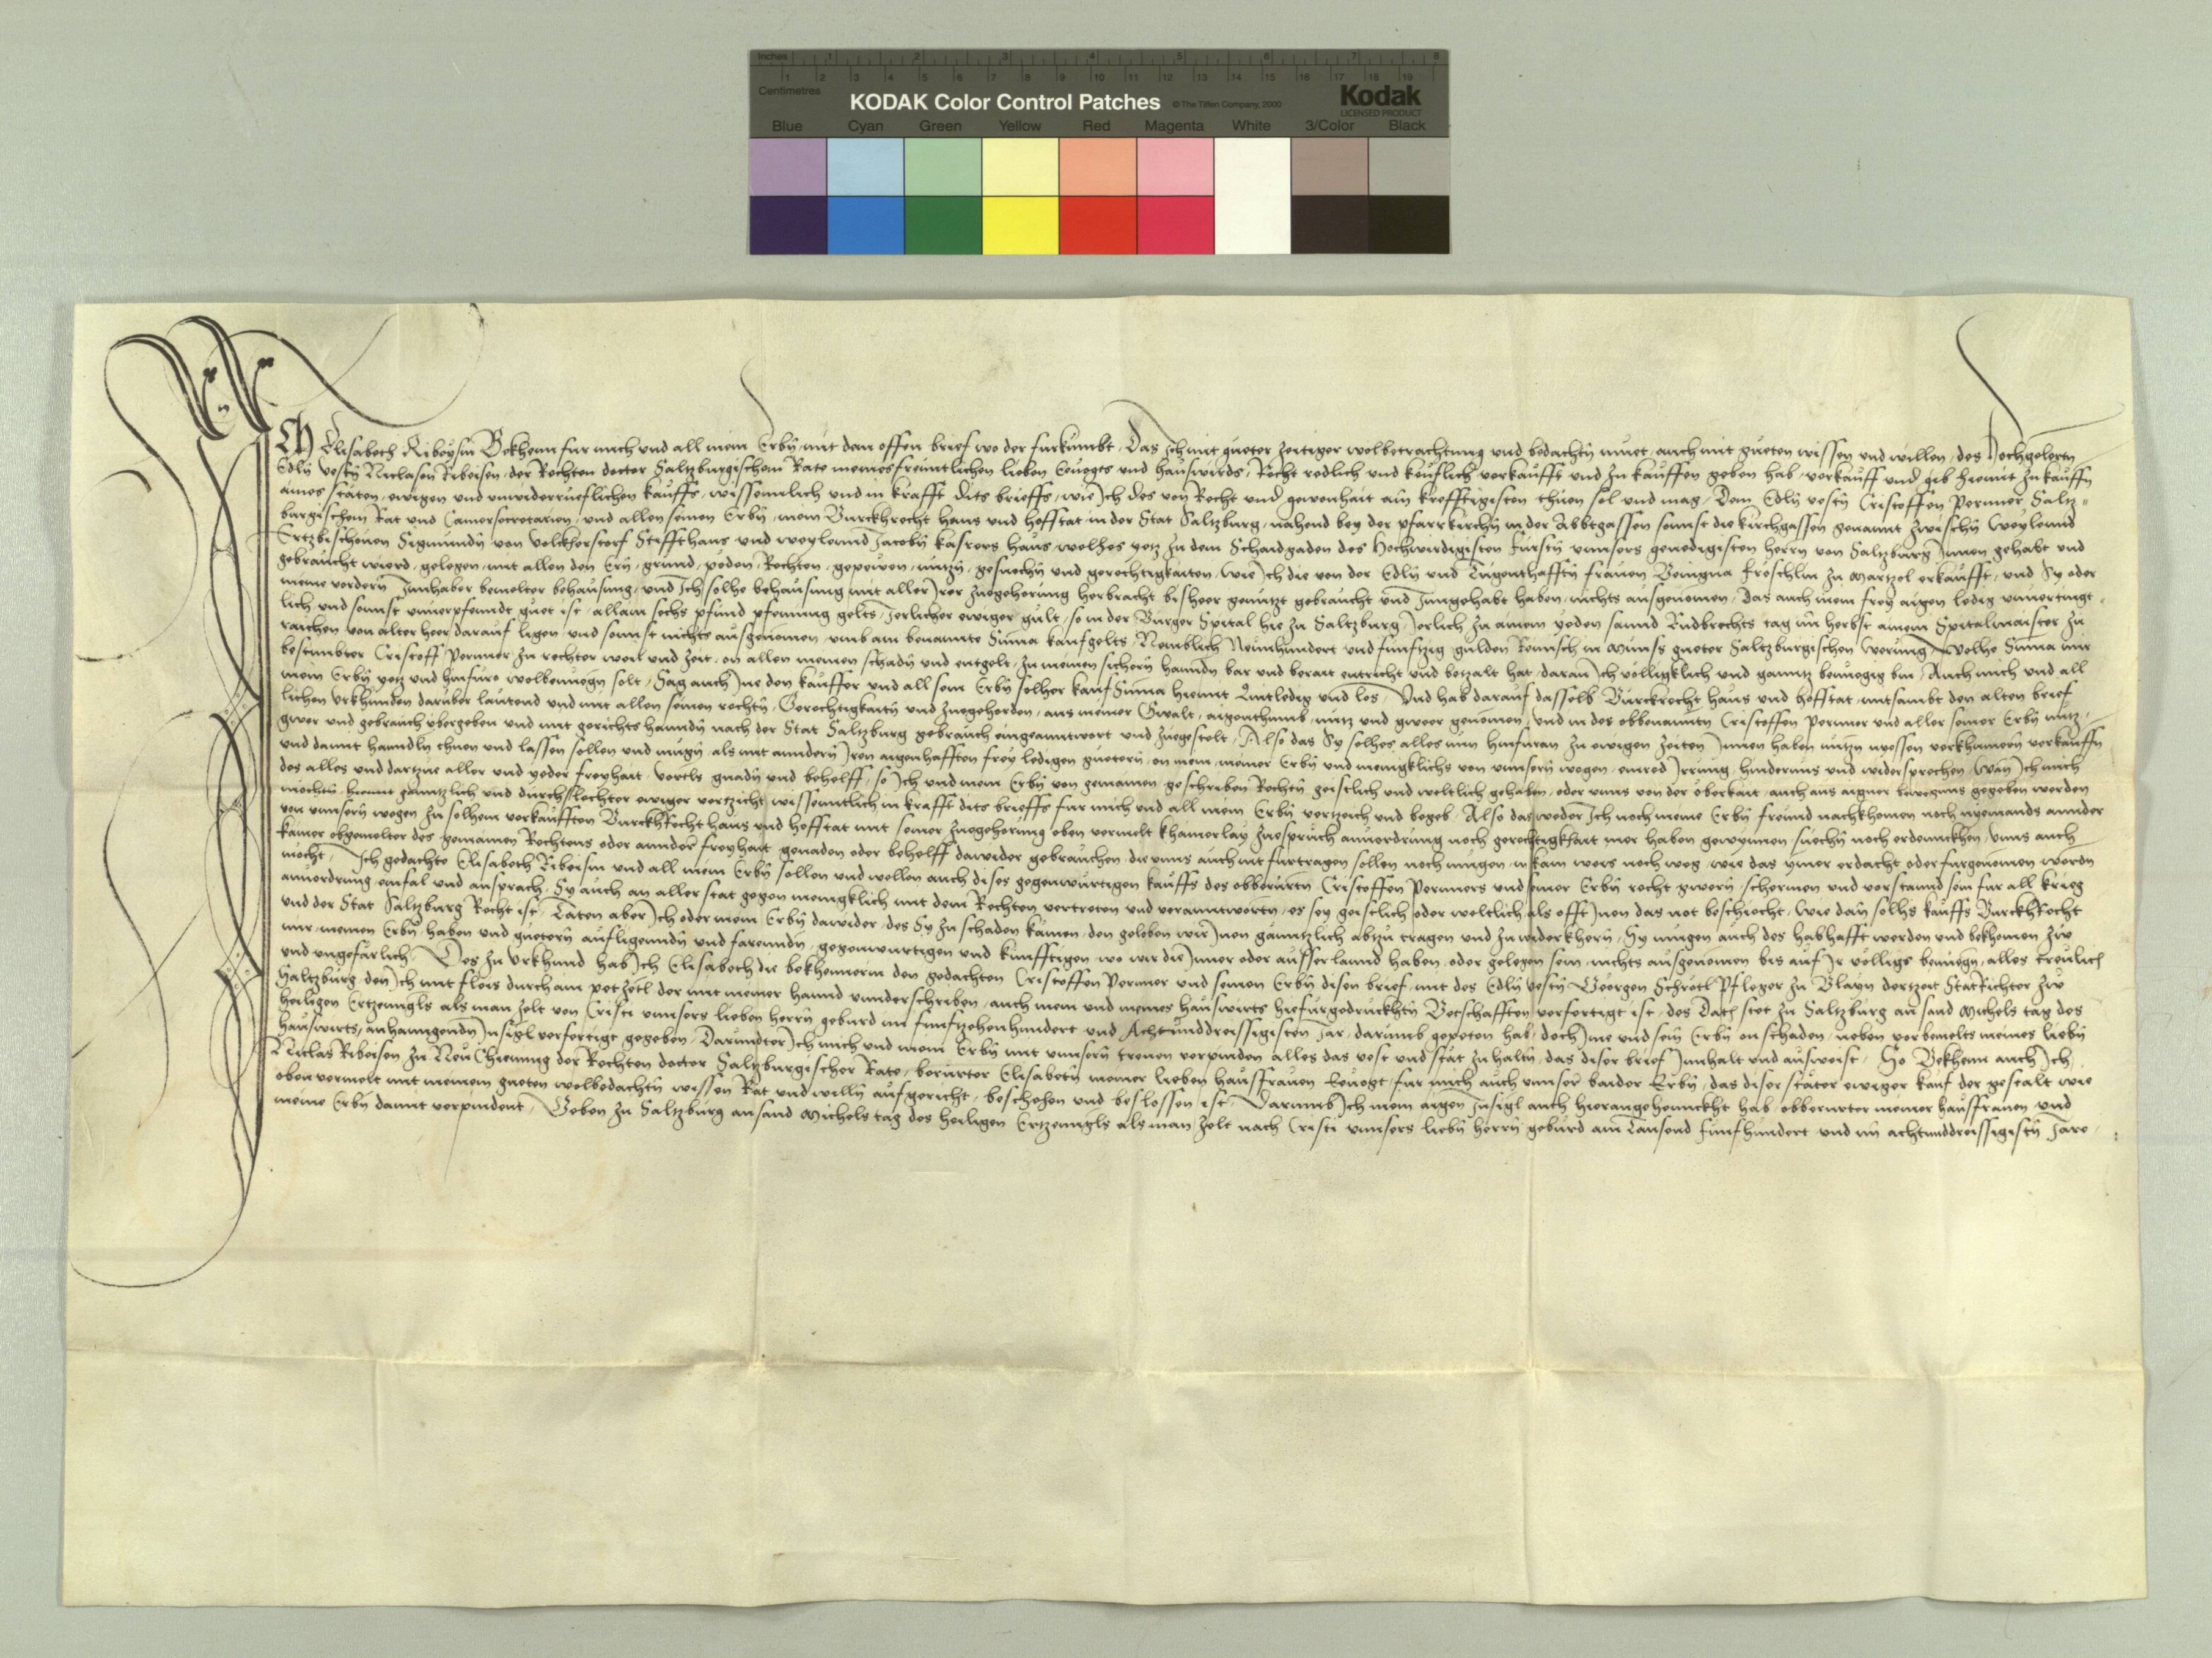 Inches 1 2 3 4 5 6 7 8
1 2 3 4 5 6 7 8 9 10 11 12 13 14 15 16 17 18 19
Centimetres
KODAK Color Control Patches © The Tiffen Company, 2000 Kodak
LICENSED PRODUCT
Blue Cyan Green Yellow Red Magenta White 3/Color Black
Ich Elisabeth Ribeysin Bekhenn fur mich und all mein Erbn mit dem offen brief wo der furkumbt, Das Ich mit gueter zeitiger wolbetrachtung und bedachtn muet, auch mit gueten wissen und willen, des Hochgelertn
Edln vestn Niclasen Ribeisen, der Rechten doctor Saltzburgischem Rate meines freuntlichen lieben Eevogts und hauswirds, Recht redlich und keuflich verkaufft und zu kauffen geben hab, verkauff und gib hiemit zu kauffn
aines stäten, ewigen und unwiderrueflichen kauffs, wissentlich und in krafft dits brieffs, wie Ich das von Recht und gewonhait am krefftigisten thuen sol und mag, Dem Edln vestn Cristoffen Perner Saltz-
burgischem Rat und Camersecretarien, und allen seinen Erbn, mein Burckhrecht haus und hofstat in der Stat Saltzburg, nahend bey der pfarrkirchn in der Abbtgassen sonnst die kirchgassen genannt zwischn Weylennd
Ertzbischoven Sigmundn von Volckherstorf Stiffthaus und weylennd Jacobn Kasrers haus welhes yetz zu dem Schaidgaden des Hochwirdigisten Furstn unnsers genedigisten herrn von Saltzburg Innen gehabt und
gebraucht wierd, gelegen, mit allen den Ern, grund, pöden, Rechten, gepewen, nutzn, gesuechn und gerechtigkaiten, Wie Ich die von der Edln und Tugenthafftn frauen Benigna Fröschlin zu Martzol erkaufft, und Sy oder
meine vordern Innhaber bemelter behausung, und Ich solhe behausung mit aller Irer zuegehorung herbracht bisheer genutzt gebraucht und Inngehabt haben, nichts ausgenomen, Das auch mein frey aigen ledig
lich und sonnst unverpfenndt guet ist, allain sechs pfund pfenning gelts, Jerlicher ewiger gult, so in der Burger Spital hie zu Saltzburg, Jerlich zu ainem yeden sannd Rudbrechts tag im herbst ainem Spitalmaister zu
raichen von alter heer darauf ligen, und sonnst nichts ausgenomen, umb ain benannte Summa kaufgelts, Nemblich Neunhundert und funftzig gulden Reinisch in Munss gueter Saltzburgischen Werung, Welhe Suma mir
bestimbter Cristoff Perner zu rechter weil und zeit, on allen meinen schadn und entgelt, zu meinen sichern hanndn bar und berait entricht und betzalt hat, daran Ich völligklich und ganntz benuegig bin, Auch mich und all
mein Erbn yetz und hinfuro wolbenuegn solt, Sag auch Ine den kauffer und all sein Erbn solher kauf Suma hiemit Quitledig und los, Und hab darauf dasselb Burckrecht haus und hofstat, mitsambt den alten brief
lichen Urkhunden daruber lautend und mit allen seinen rechtn, Gerechtigkaitn und zuegehorden, aus meiner Gwalt, aigenthumb, nutz und gweer genomen, und in des obbenanntn Cristoffen Perner und aller seiner Erbn nutz,
gwer und gebrauch ubergeben und mit gerichts hanndn nach der Stat Saltzburg gebrauch eingeanntwort und zuegestelt, Also das Sy solhes alles nun hinfuran zu ewigen zeiten Innen haben nutzn nyessen verkhumern verkauffn
und damit hanndln thuen und lassen sollen und mugn, als mit anndern Iren aigenhafften frey ledigen guetern, on mein, meiner Erbn und menigklichs von unnsern wegen, einred Irrung, hindernus und widersprechen, Wan Ich mich
des alles und dartzue aller und yeder freyhait, vortls gnadn und behelff, so Ich und mein Erbn von gemainen geschriben Rechtn geistlich und weltlich gehaben, oder unns von der Oberkait, auch aus aigner bewegnus gegeben werden
mochtn, hiemit ganntzlich und durchslechter ewiger vertzicht wissenntlich in krafft dits brieffs fur mich und all mein Erbn vertzeich und begeb, Also das weder Ich noch meine Erbn freund nachkhomen noch nyemands annder
von unnsern wegen zu solhem verkaufften Burckhrecht haus und hofstat mit seiner zuegehorung oben vermelt khainerlay zuespruch annvordrung noch gerechtigkhait mer haben gewynnen suechn noch erdennckhen, unns auch
kainer obgemelter des gemainen Rechtens oder annder freyhait genaden oder behelff dawider gebrauchen, die unns auch nit furtragen sollen noch mugen, in kain weis noch weg, wie das ymer erdacht oder furgenomen werdn
mocht, Ich gedachte Elisabeth Ribeisin und all mein Erbn sollen und wellen auch dises gegenwurtigen kauffs des obberurtn Cristoffen Perners und seiner Erbn recht gwern schermen und vorstannd sein fur all krieg
annvordrung, einfal und ansprach, Sy auch an aller stat gegen menigklich mit dem Rechten vertreten und verannttwortn, es sey geistlich oder weltlich als offt Inen das not beschiecht, Wie dan solhs kauffs Burckhrecht
und der Stat Saltzburg Recht ist, Täten aber Ich oder mein Erbn dawider, des Sy zu schaden kämen, den geloben wir Inen ganntzlich abzutragen und zu widerkhern, Sy mugen auch des habhafft werden und bekhomen zu
mir, meinen Erbn, haben und guetern aufligenndn und farenndn, gegenwurtigen und kunfftigen, wo wir die Inner oder ausser lannd haben, oder gelegen sein, nichts ausgenomen bis auf Ir völligs benuegn, alles treulich
und ungefärlich, Des zu Urkhund hab Ich Elisabeth die bekhennerin den gedachten Cristoffen Perner und seinen Erbn disen brief, mit des Edln vestn Georgen Schrötl Pfleger zu Glaneck dertzeit Statrichter zu
Saltzburg, den Ich mit fleis durch ain petzetl der mit meiner hannd unnderschriben, auch mein und meines hauswirts hiefurgedruckhtn Petschafften verfertigt ist, des Dat stet zu Saltzburg an sand Michels tag des
heiligen Ertzenngls als man zelt von Cristi unnsers lieben herrn geburd im funfftzehenhundert und Achtunddreissigisten Jar, darumb gepeten hab, doch Ine und sein Erbn on schaden, neben vorbemelts meines liebn
hauswirts, anhanngendn Insigl verfertigt, gegeben, Darundter Ich mich und mein Erbn mit unnsern treuen verpinden alles das vest und stät zu haltn, das diser brief Innhalt und ausweist, So Bekhenn auch Ich
Niclas Ribeisen zu Neu Chieming der Rechten doctor Saltzburgischer Rate, berurter Elisabetn meiner lieben hausfrauen Eevogt, fur mich auch unnser baider Erbn, das diser stäter ewiger kauf der gestalt wie
oben vermelt mit meinem gueten wolbedachtn wissen Rat und willn aufgericht, beschehen und beslossen ist, Darumb Ich mein aigen Insigl auch hieran gehennckht hab, obberurter meiner hausfrauen und
meine Erbn damit verpindent, Geben zu Saltzburg an sand Michels tag des heiligen Ertzenngls als man zelt nach Cristi unnsers liebn herrn geburd ain Tausend Funfhundert und im achtunddreissigistn Jare